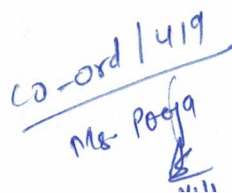 co-ord/419
Ms. Pooja